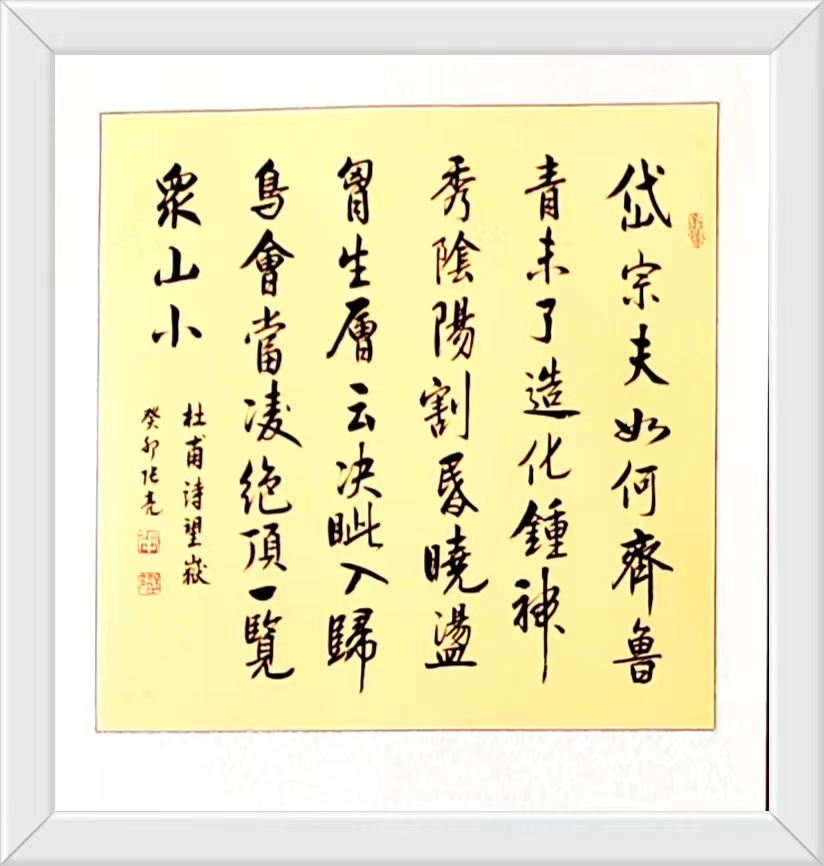 岱宗夫如何齊魯
青未了造化鍾神
秀陰陽割昏曉盪
胷生層云决眦入歸
鳥會當凌絶頂一覽
衆山小
杜甫詩望嶽
癸卯张亮